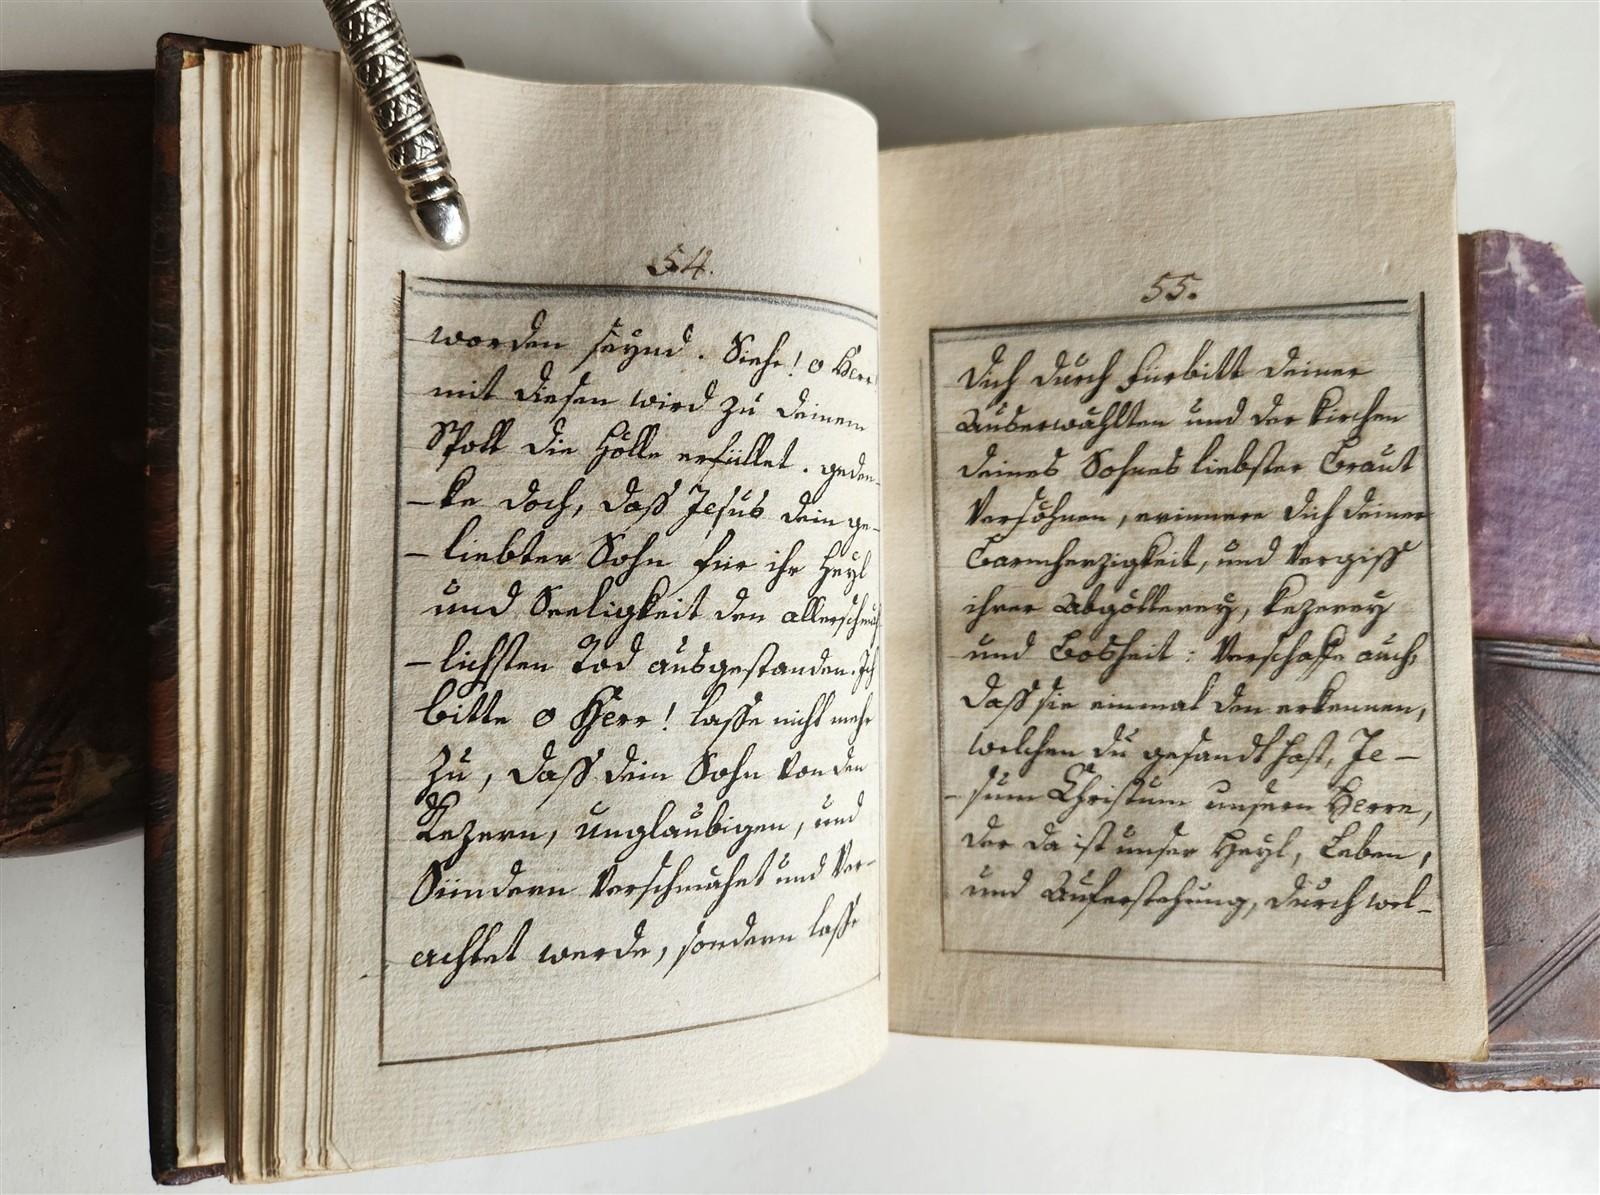 54.
worden seynd. Siehe! o Herr
mit diesen wird zu deinem
Spott die Hölle erfüllet. geden-
-ke doch, daß Jesus dein ge-
-liebter Sohn für ihr Heyl
und Seeligkeit den allerschmäh-
-lichsten Tod ausgestanden. Ich
bitte o Herr! lasse nicht mehr
zu, daß dein Sohn von den
Kezern, unglaubigen, und
Sündern verschmähet und ver-
achtet werde, sondern lasse
55.
dich durch fürbitt deiner
Auserwählten und der kirchen
deines Sohnes liebster Braut
versöhnen, erinnere dich deiner
Barmherzigkeit, und vergiß
ihrer Abgötterey, kezerey
und Bosheit: verschaffe auch,
daß sie einmal den erkennen,
welchen du gesandt hast, Je-
-sum Christum unsern Herrn,
der da ist unser Heyl, Leben,
und Auferstehung, durch wel-